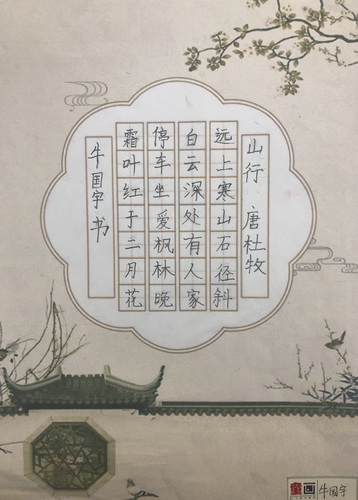 山行 唐 杜牧
远上寒山石径斜
白云深处有人家
停车坐爱枫林晚
霜叶红于二月花
牛国宇 书
童画 牛国宇